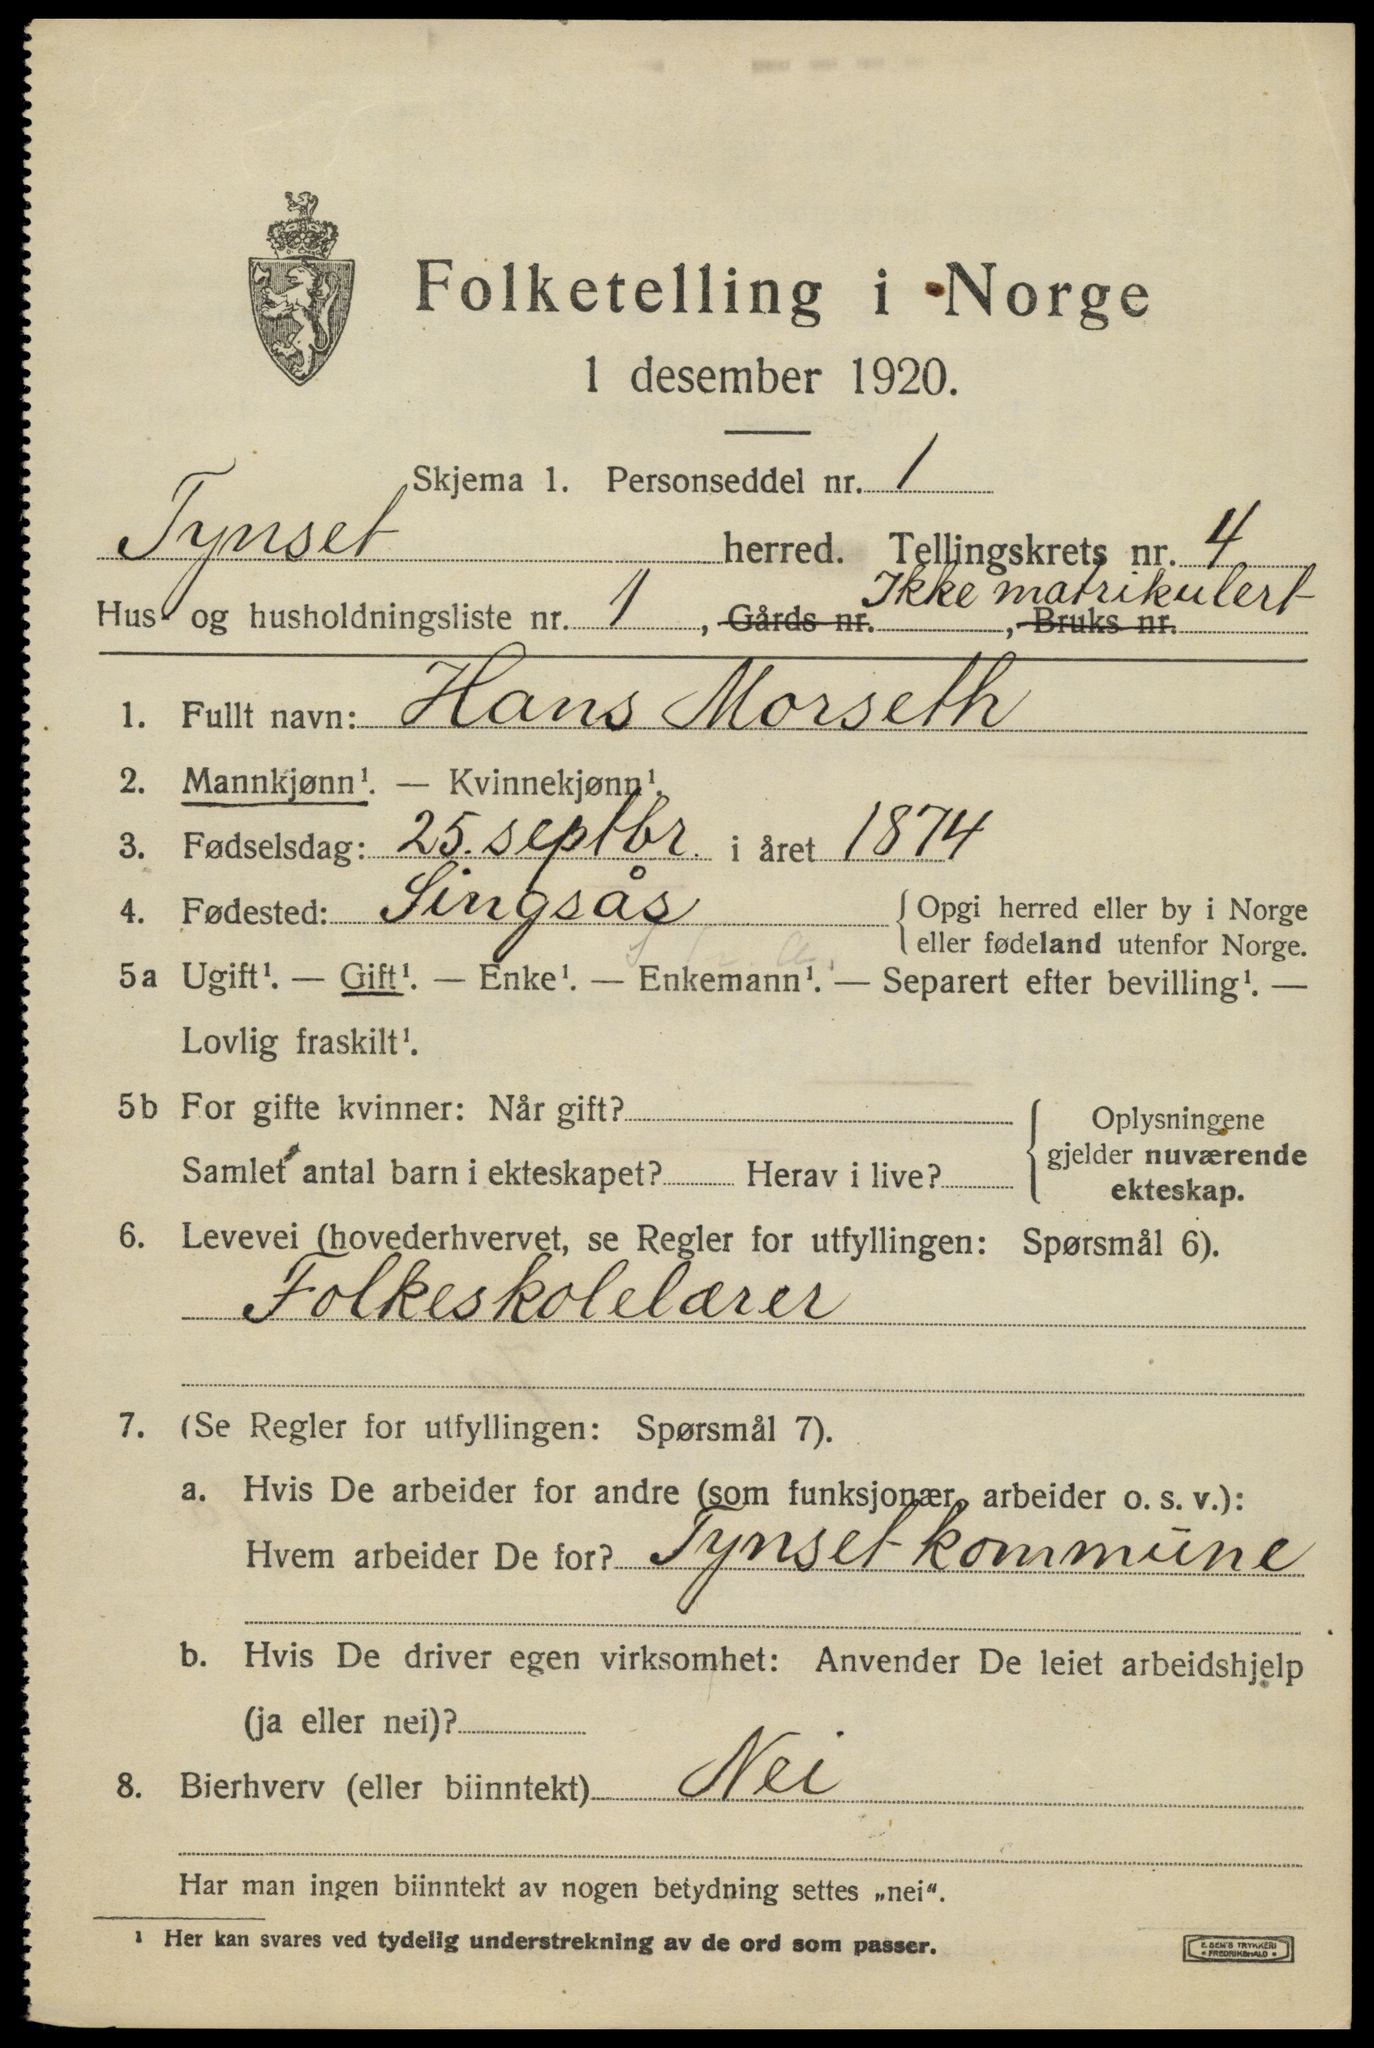 Folketelling i Norge
1 desember 1920.
Skjema 1. Personseddel nr. 1
Tynset herred. Tellingskrets nr. 4
Ikke matrikulert
Hus- og husholdningsliste nr. 1, Gårds nr. , Bruks nr.
1. Fullt navn: Hans Morseth
2. Mannkjønn¹. — Kvinnekjønn¹.
3. Fødselsdag: 25. septbr. i året 1874
4. Fødested: Singsås { Opgi herred eller by i Norge
eller fødeland utenfor Norge.
5a Ugift¹. — Gift¹. — Enke¹. — Enkemann¹. — Separert efter bevilling¹. —
Lovlig fraskilt¹.
5b For gifte kvinner: Når gift? { Oplysningene
gjelder nuværende
Samlet antal barn i ekteskapet? Herav i live?
ekteskap.
6. Levevei (hovederhvervet, se Regler for utfyllingen: Spørsmål 6).
Folkeskolelærer
7. (Se Regler for utfyllingen: Spørsmål 7).
a. Hvis De arbeider for andre (som funksjonær, arbeider o. s. v.):
Hvem arbeider De for? Tynset kommune
b. Hvis De driver egen virksomhet: Anvender De leiet arbeidshjelp
(ja eller nei)?
8. Bierhverv (eller biinntekt) Nei
Har man ingen biinntekt av nogen betydning settes „nei“.
¹ Her kan svares ved tydelig understrekning av de ord som passer.
E. SEM'S TRYKKERI
• FREDRIKSHALD •